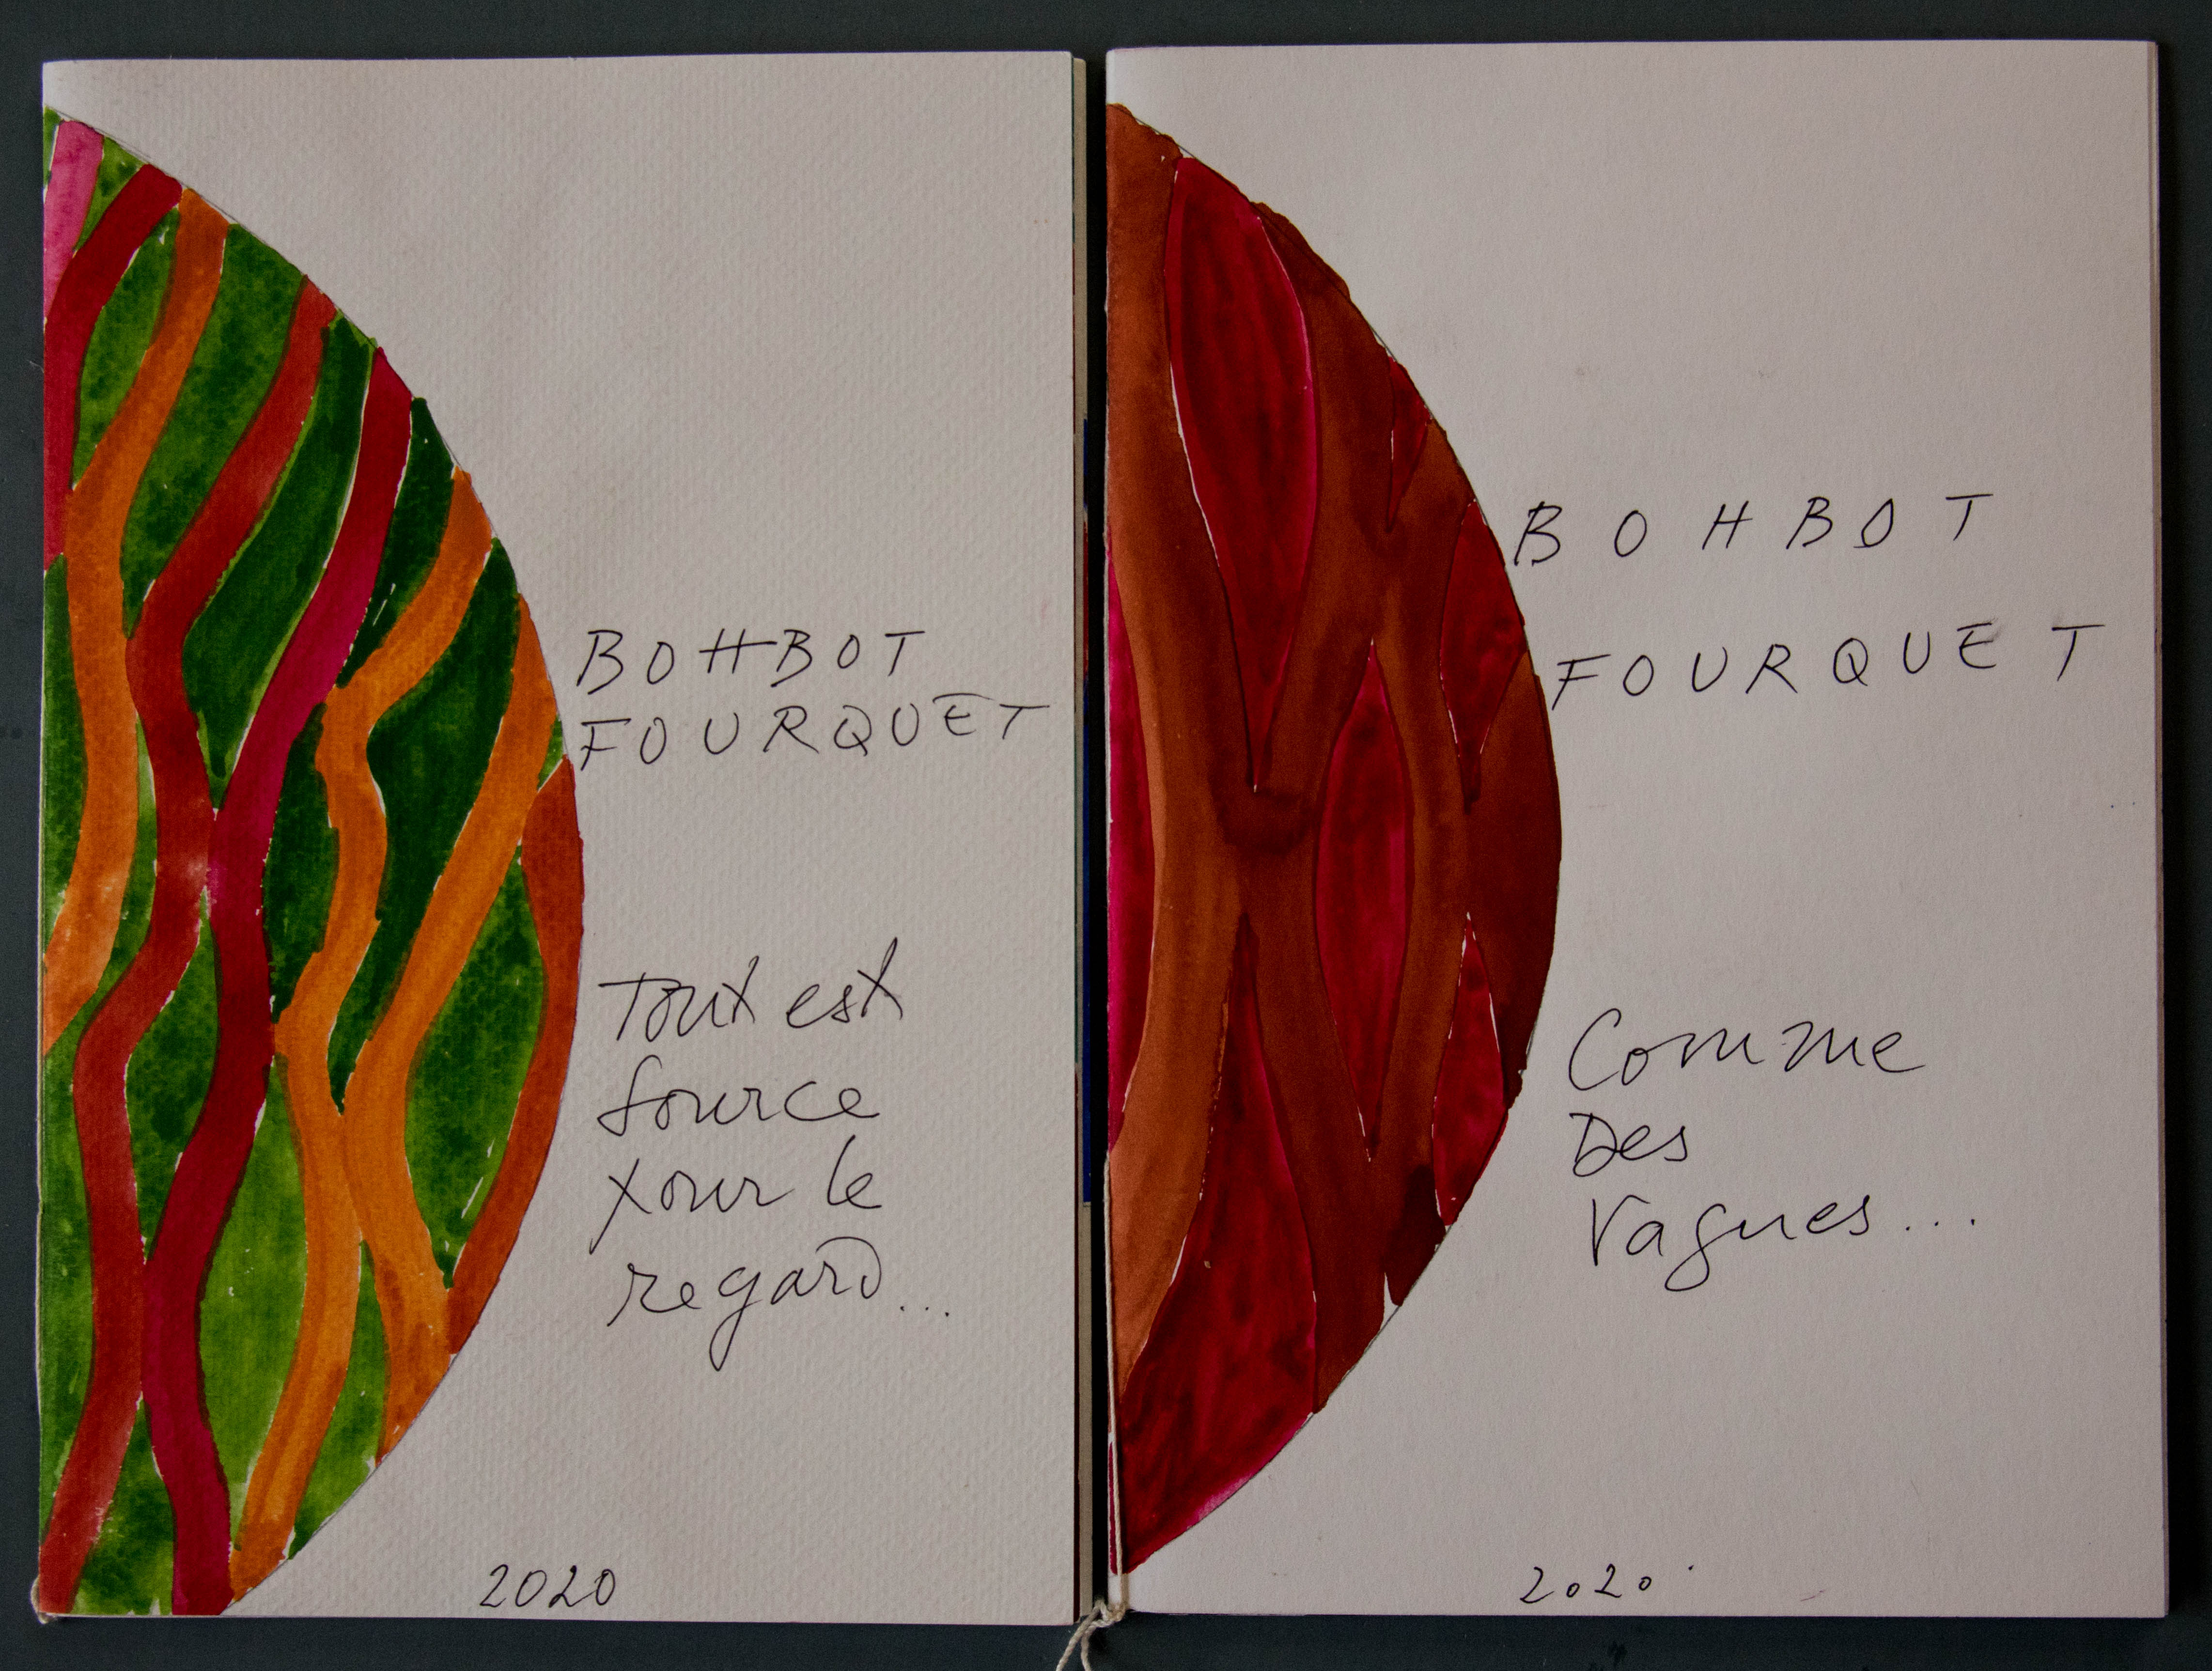 BOHBOT
FOURQUET
Tout est
source
pour le
regard...
2020
BOHBOT
FOURQUET
Comme
Des
Vagues...
2020